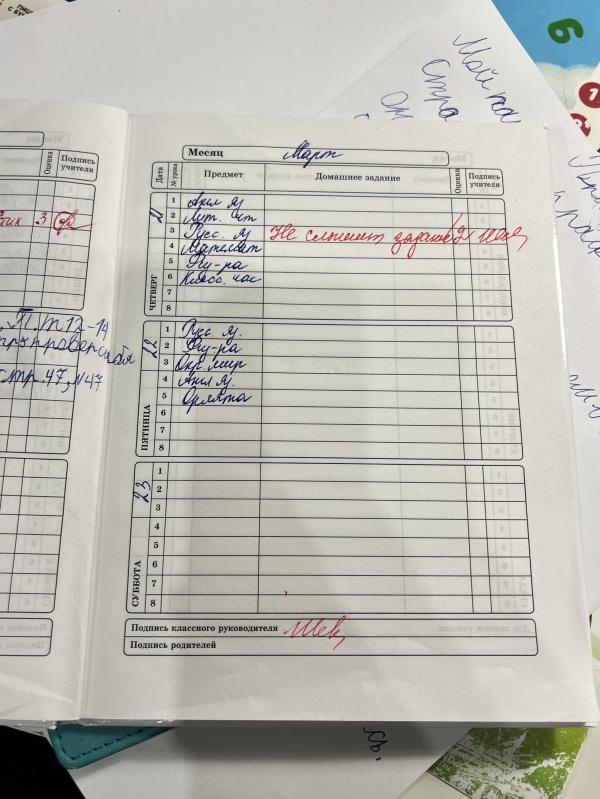 Мой па
Стра
Он
6
Месяц Март
Дата № урока Предмет Домашнее задание Оценка Подпись учителя
Оценка Подпись учителя
21 ЧЕТВЕРГ
1 Англ Я
2 Лит. чт
3 Русс. Я Не слышит задание! 2 Шев
4 Математ
5 Физ-ра
6 Класс. час
7
8
3
П.Т. 12-14
стр. 47, №47
22 ПЯТНИЦА
1 Русс. Я.
2 Физ-ра
3 Окр. мир
4 Англ Я.
5 Орлята
6
7
8
23 СУББОТА
1
2
3
4
5
6
7
8
Подпись классного руководителя Шев
Подпись родителей